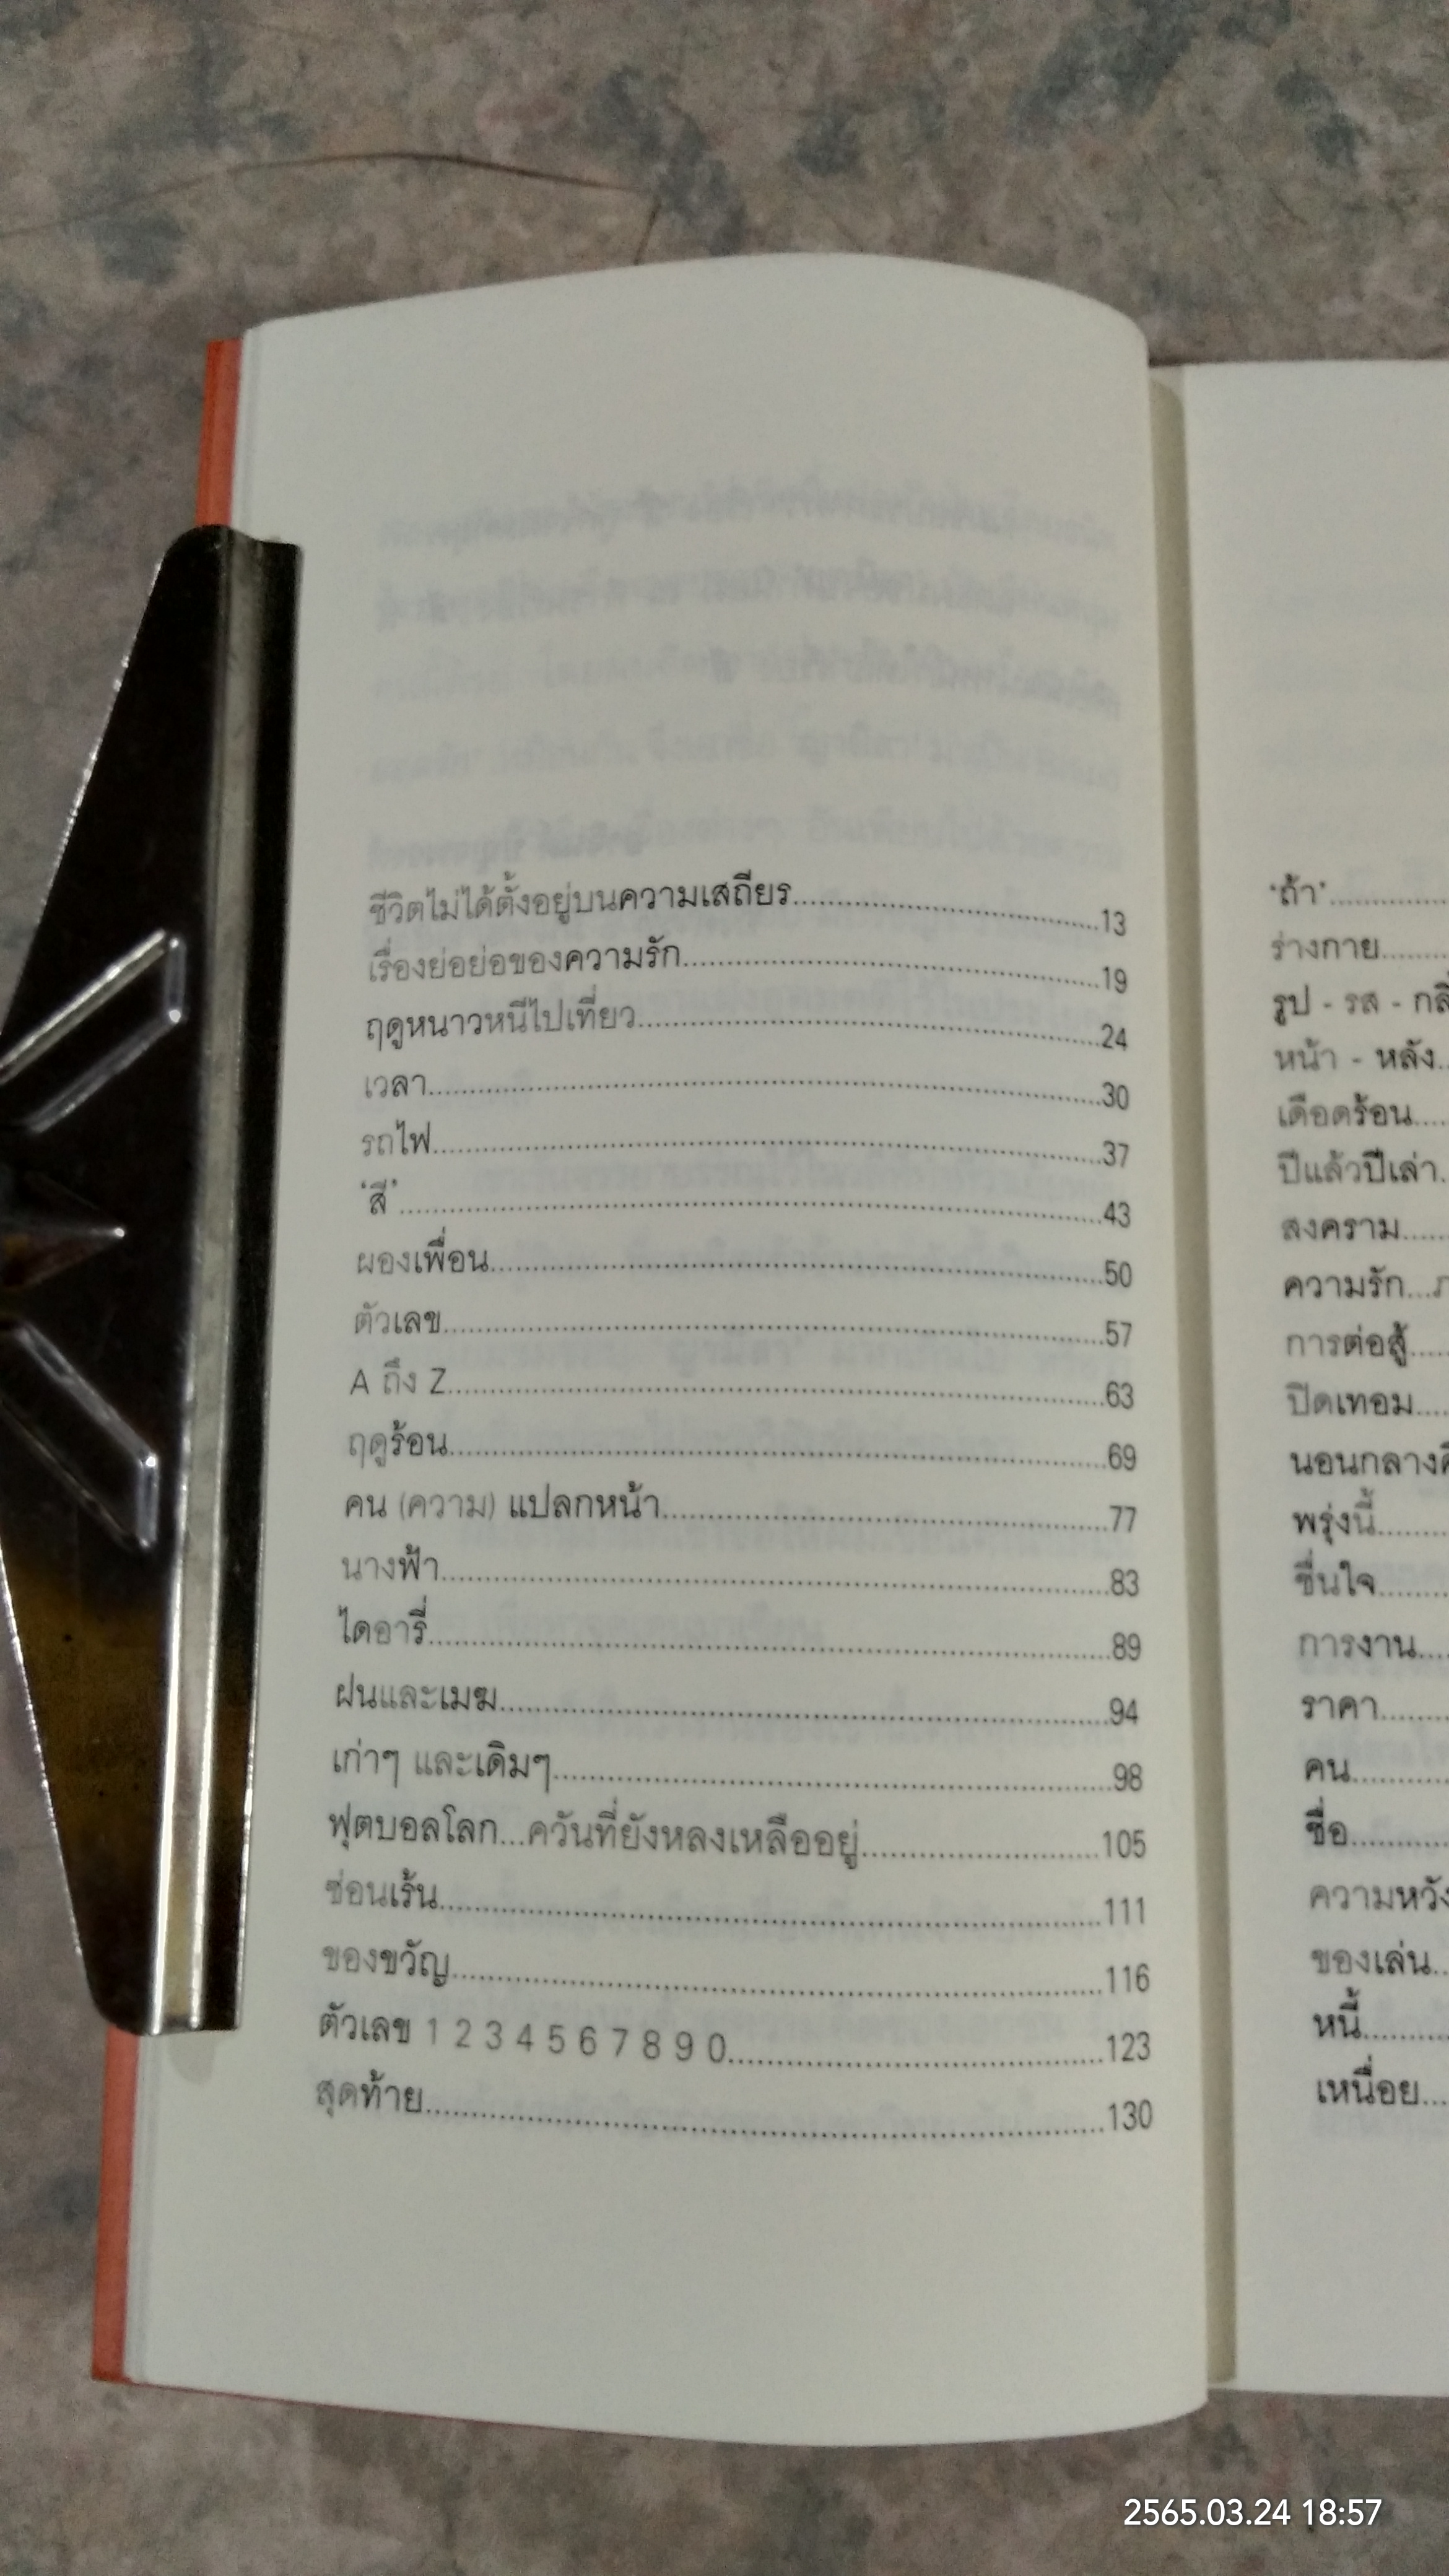 ชีวิตไม่ได้ตั้งอยู่บนความเสถียร..........13
เรื่องย่อย่อของความรัก..........19
ฤดูหนาวหนีไปเที่ยว..........24
เวลา..........30
รถไฟ..........37
'สี'..........43
ผองเพื่อน..........50
ตัวเลข..........57
A ถึง Z..........63
ฤดูร้อน..........69
คน (ความ) แปลกหน้า..........77
นางฟ้า..........83
ไดอารี่..........89
ฝนและเมฆ..........94
เก่าๆ และเดิมๆ..........98
ฟุตบอลโลก...ควันที่ยังหลงเหลืออยู่..........105
ซ่อนเร้น..........111
ของขวัญ..........116
ตัวเลข 1 2 3 4 5 6 7 8 9 0..........123
สุดท้าย..........130
'ถ้า'..........
ร่างกาย..........
รูป - รส -
หน้า - หลัง..
เดือดร้อน....
ปีแล้วปีเล่า.
สงคราม......
ความรัก...
การต่อสู้.....
ปิดเทอม....
นอนกลาง
พรุ่งนี้..........
ชื่นใจ..........
การงาน....
ราคา..........
คน..........
ชื่อ..........
ความหวัง
ของเล่น..
หนี้..........
เหนื่อย...
2565.03.24 18:57